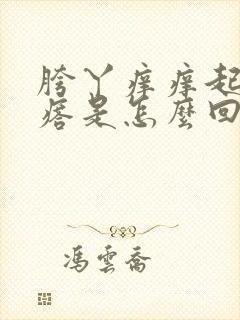 胯丫痒痒起
痞是怎麼回
馮雲喬